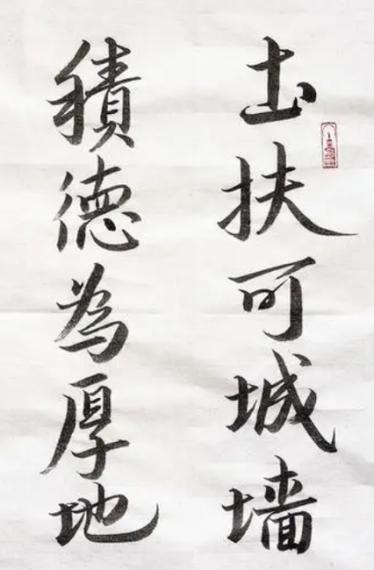 土扶可城墙
積德為厚地